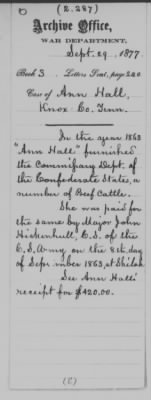 (2.287)
Archive Office,
WAR DEPARTMENT,
Sept. 29, 1877.
Book 3. Letters Sent, page 240
Case of Ann Hall,
Knox Co. Tenn.
In the year 1863
"Ann Hall" furnished
the Commissary Dept. of
the Confederate States, a
number of Beef Cattle.
She was paid for
the same by Major John
Hickenhull, C.S. of the
C.S. Army on the 8th. day
of September 1863, at Shiloh
See Ann Hall's
receipt for $420.00.
(C)